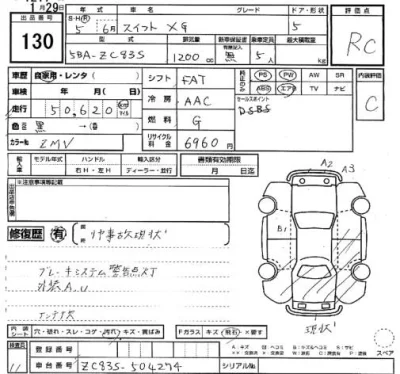 1月29日
出品番号 年式 車名 グレード ドア・形状 評価点
S・H・R
130 5年 6月 スイフト XG 5 RC
型式 排気量 新車保証書 乗車定員 最大積載量
5BA-ZC83S 1200cc 有 無 5人
車歴 自家用・レンタ( ) シフト FAT PS PW AW SR 内装評価
車検 年 月 日 冷房 AAC ABS エアB TV ナビ C
走行 50,620 km マイル セールスポイント
DSBS
色 黒→( ) 燃料 G
カラーNo. ZMV リサイクル料金 6960円
輸入車 モデル年式 ハンドル 輸入区分 書類有効期限
右H・左H ディーラー・並行 月 日迄
※注意事項等記載
A2 A3
修復歴 有 リヤ事故現状
B1
ブレーキシステム警告点灯
外装A,U
現状
内装 シート 穴・切れ・スレ・コゲ・汚れ・キズ・黄ばみ Fガラス キズ 飛石 ×要す スペア
登録番号
11 車台番号 ZC83S-504274 シリアルNo.